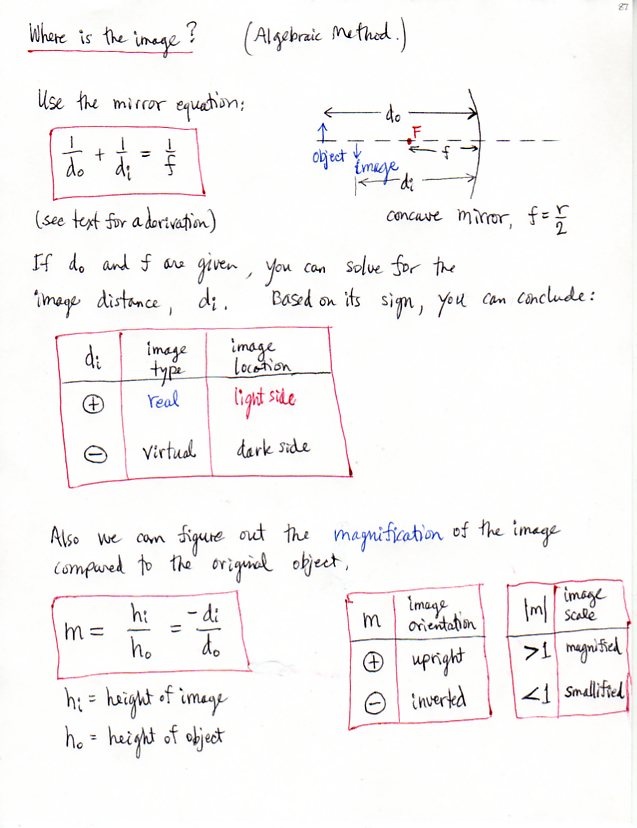 87
Where is the image? (Algebraic Method.)
Use the mirror equation:
1/do + 1/di = 1/f
(see text for a derivation)
do
F
object
image
f
di
concave mirror, f = r/2
If do and f are given, you can solve for the
image distance, di. Based on its sign, you can conclude:
di image type image location
⊕ real light side
⊖ virtual dark side
Also we can figure out the magnification of the image
compared to the original object.
m = hi/ho = -di/do
hi = height of image
ho = height of object
m image orientation
⊕ upright
⊖ inverted
|m| image scale
>1 magnified
<1 smallified